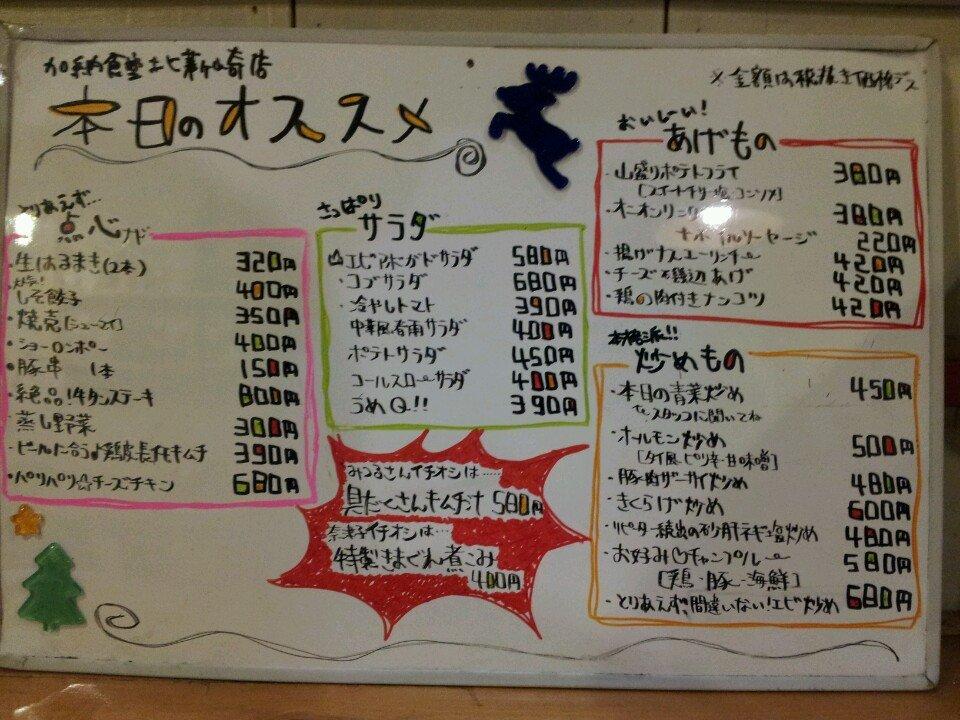 加納食堂北新崎店
本日のオススメ
※金額は税抜き価格デス
とりあえず…
点心ナド
・生はるまき(2本) 320円
しそ餃子 400円
・焼売[シューマイ] 350円
・ショーロンポー 400円
・豚串 1本 150円
・絶品!牛タンステーキ 800円
蒸し野菜 300円
・ビールに合うよ鶏皮長芋キムチ 390円
・パリパリ☆チーズチキン 680円
さっぱり
サラダ
エビアボカドサラダ 580円
・コブサラダ 680円
・冷やしトマト 390円
中華風春雨サラダ 400円
ポテトサラダ 450円
コールスローサラダ 400円
うめQ!! 390円
みつるさんイチオシは……
具たくさんキムチ汁 580円
イチオシは…
特製きまぐれ煮こみ
400円
おいしい!
あげもの
・山盛りポテトフライ 380円
[スイートチリ・塩・コンソメ]
・オニオンリング 380円
ソーセージ 220円
・揚げナス 420円
・チーズの磯辺あげ 420円
・鶏の肉付きナンコツ 420円
本格派!!
炒めもの
・本日の青菜炒め 450円
スタッフに聞いてね
・ホルモン炒め 500円
[タイ風・ピリ辛・甘味噌]
・豚肉ザーサイ炒め 480円
・きくらげ炒め 600円
・リピーター続出の砂肝ネギ塩炒め 480円
・お好み♡チャンプルー 580円
[鶏・豚・海鮮]
・とりあえず間違いない!エビ炒め 680円